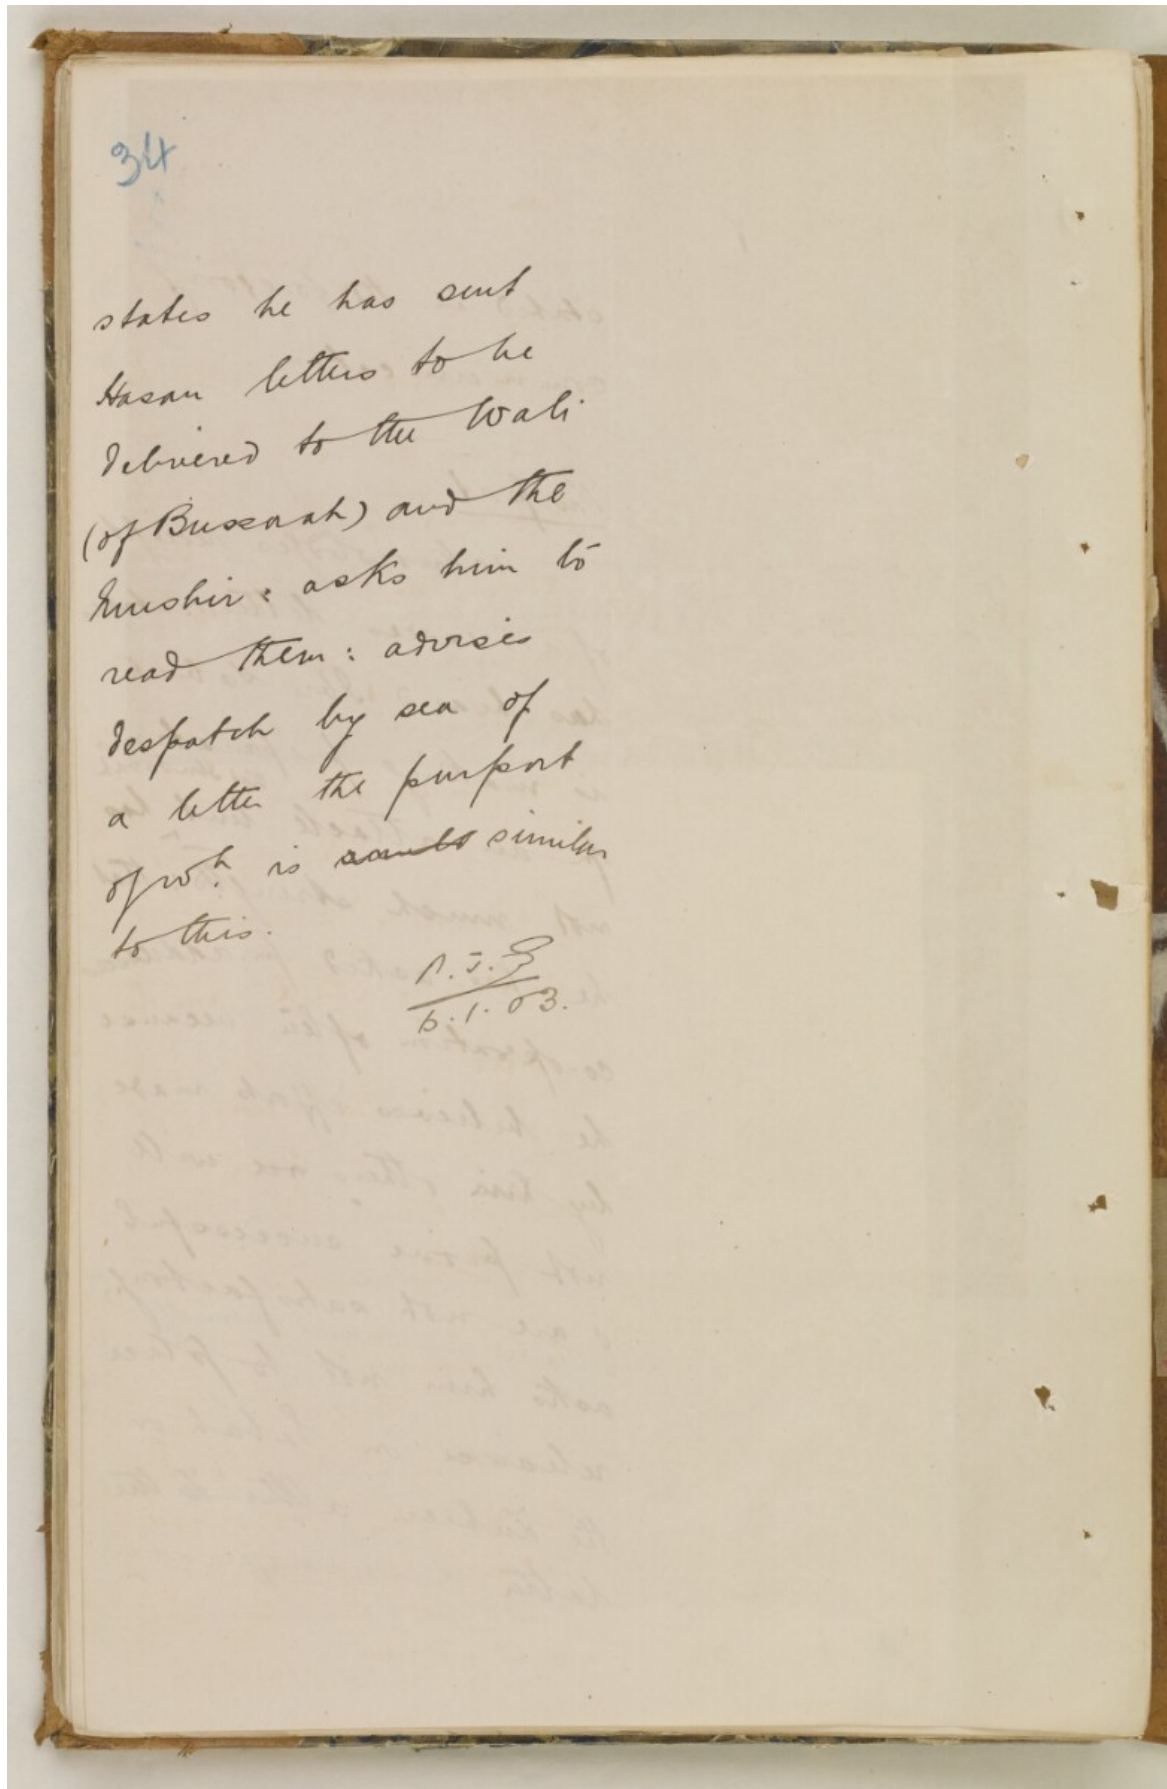 34
states he has sent
Hasan letters to be
delivered to the Wali
(of Bussorah) and the
Mushir: asks him to
read them: advises
despatch by sea of
a letter the purport
of wh. is similar
to this.
6.1.03.